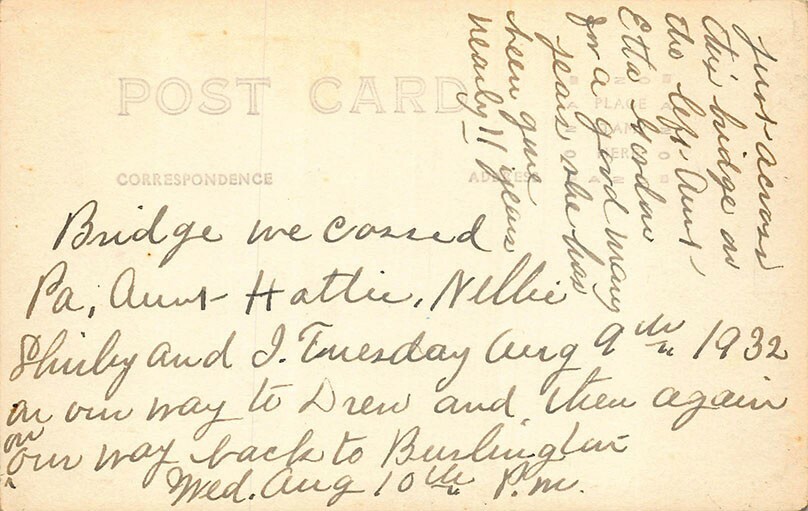 POST CARD
CORRESPONDENCE
ADDRESS
PLACE
STAMP
HERE
Bridge we cossed
Pa, Aunt Hattie, Nellie
Shirly and I. Tuesday Aug 9th 1932
on our way to Drew and then again
on our way back to Burlington
Wed. Aug 10th P.m.
Just across
this bridge on
the left Aunt
Etta Gordon
for a good many
years she has
been gone
nearly 11 years